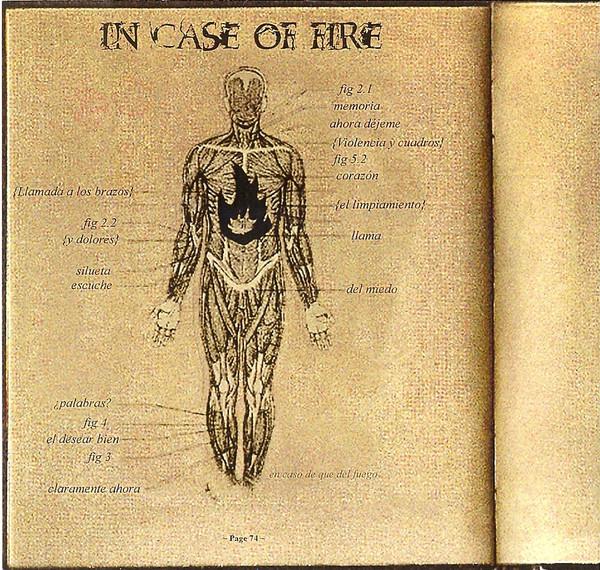 IN CASE OF FIRE
fig 2.1
memoria
ahora déjeme
{Violencia y cuadros}
fig 5.2
corazón
{Llamada a los brazos}
{el limpiamiento}
fig 2.2
{y dolores}
llama
silueta
escuche
del miedo
¿palabras?
fig 4
el desear bien
fig 3
en caso de que del fuego.
claramente ahora
~ Page 74 ~